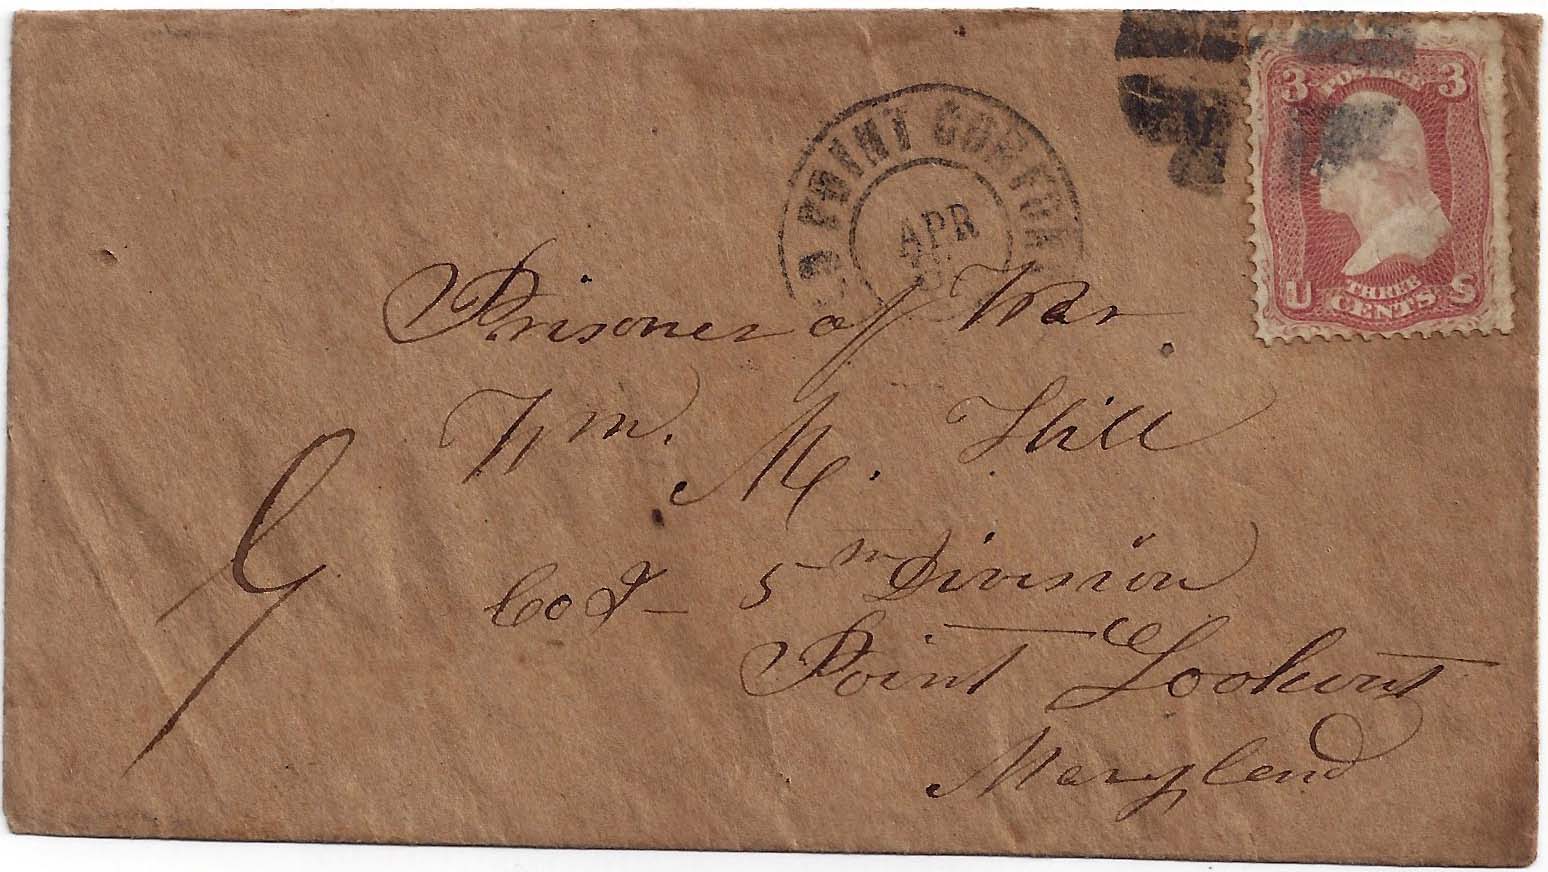 POINT COMFORT
APR
3 POSTAGE 3
U THREE S
CENTS
Prisoner of War.
Wm. M. Hill
Co I 5th Division
Point Lookout
Maryland